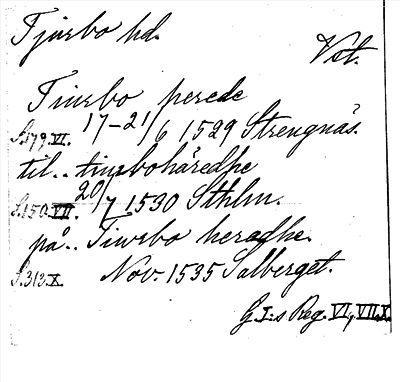 Tjurbo hd.
Vst.
Tiurbo herede
S.179.VI. 17-21/6 1529 Strengnäs.
til.. tiurbohäredhe
S.150.VII. 20/7 1530 Sthlm.
på.. Tiwrbo heradhe.
S.313.X. Nov. 1535 Salberget.
G.I:s Reg. VI, VII, X